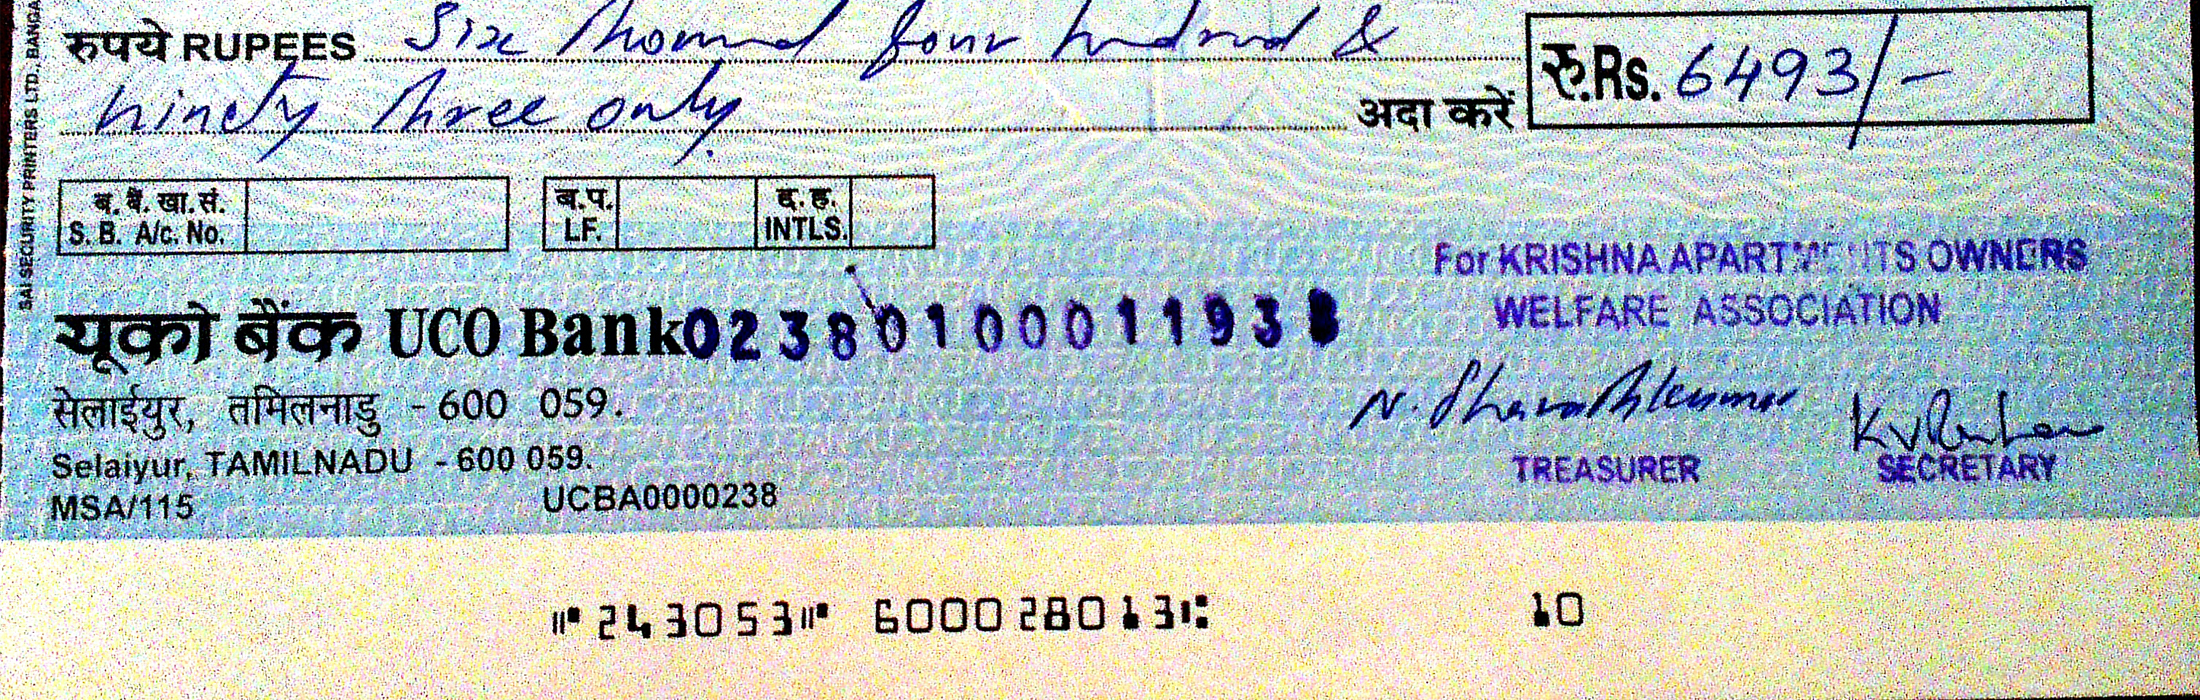 SAI SECURITY PRINTERS LTD., BANGA
रुपये RUPEES Six thousand four hundred &
ninety three only
अदा करें रु.Rs. 6493/-
ब. बैं. खा. सं.
S. B. A/c. No.
ब.प.
LF.
द. ह.
INTLS.
For KRISHNA APARTMENTS OWNERS
WELFARE ASSOCIATION
यूको बैंक UCO Bank 0238010001193
सेलाईयुर, तमिलनाडु - 600 059.
Selaiyur, TAMILNADU - 600 059.
MSA/115 UCBA0000238
TREASURER SECRETARY
⑈243053⑈ 600028013⑆ 10